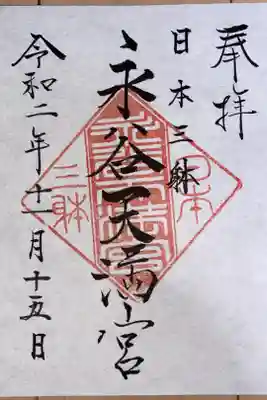 奉拝
日本三躰
永谷天満宮
令和二年十一月十五日
日本
三躰